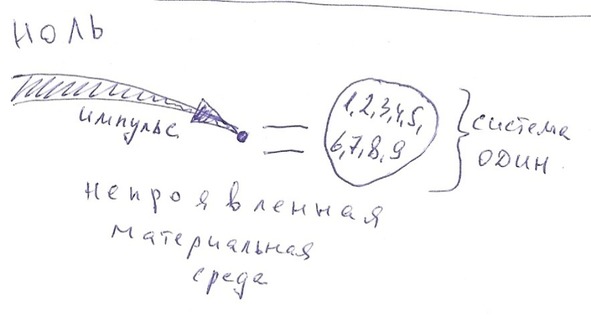 НОЛЬ
импульс
=
1,2,3,4,5,
6,7,8,9
система
один.
непроявленная
материальная
среда